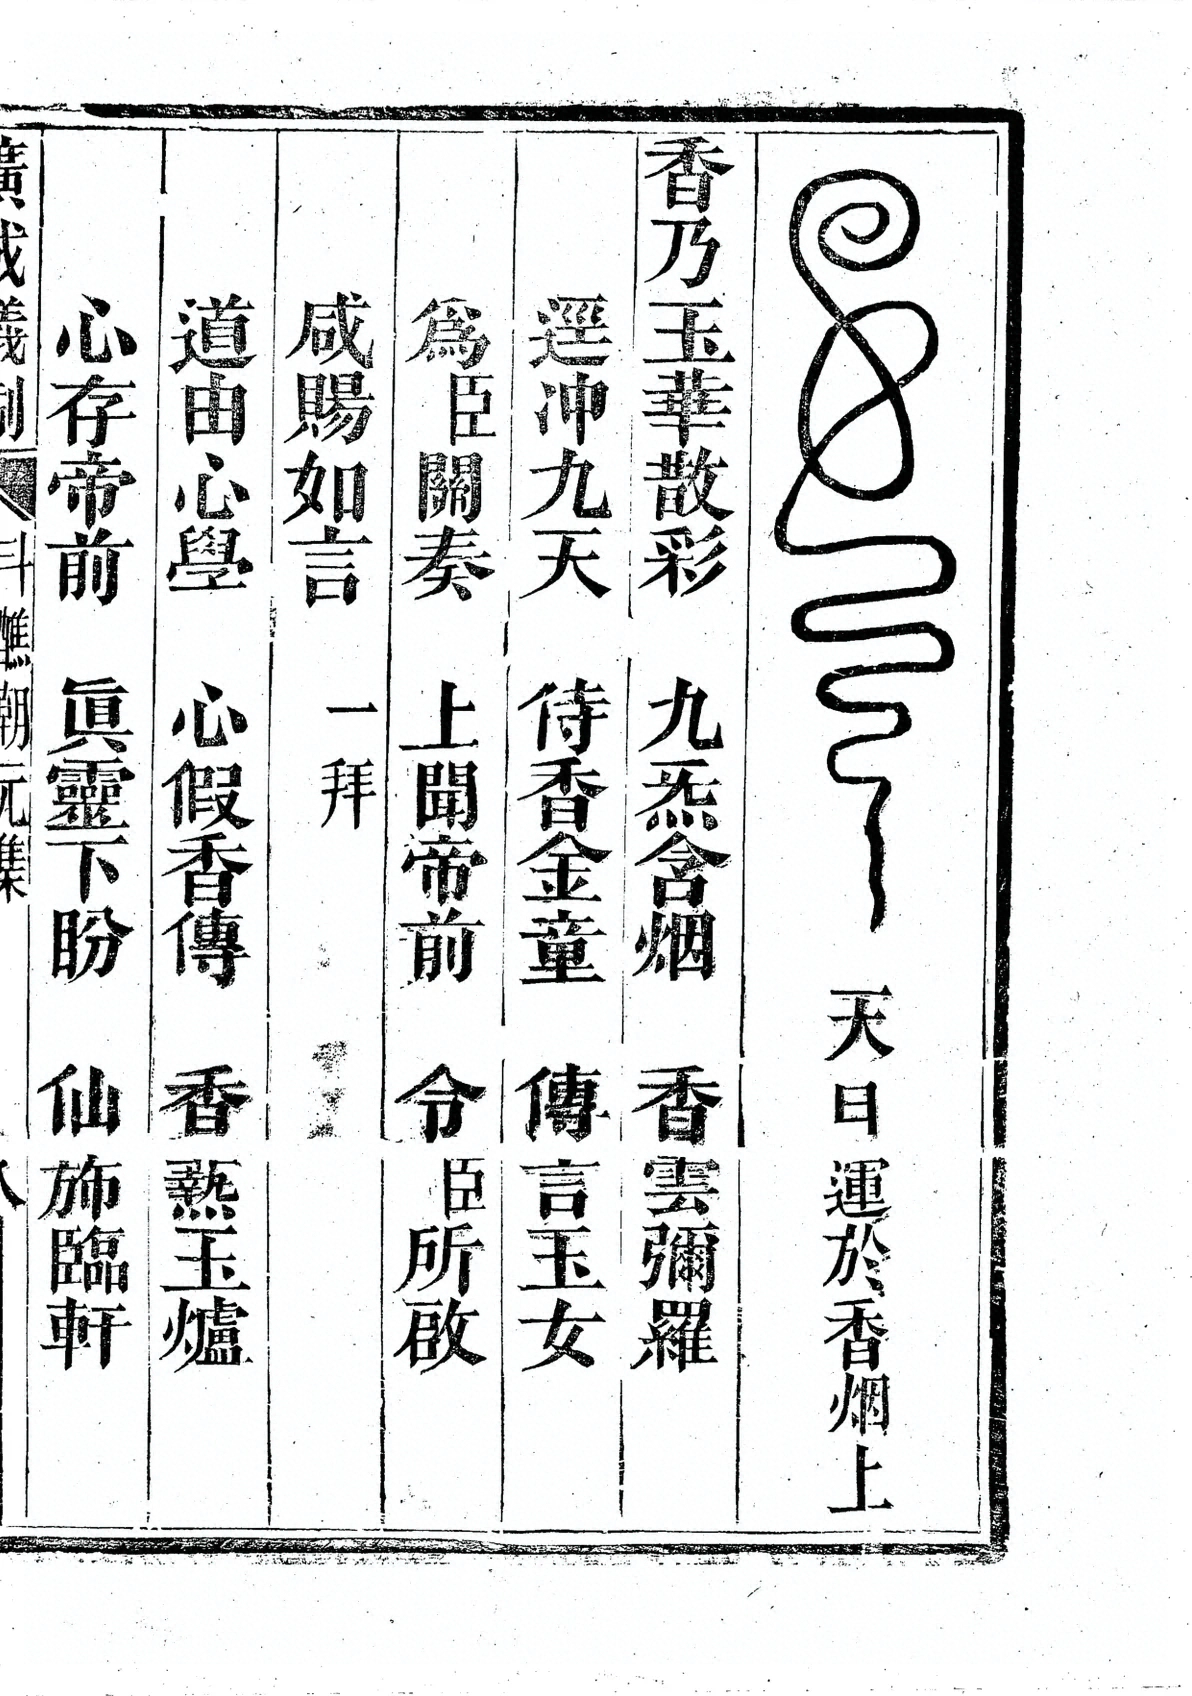 天日運於香烟上
香乃玉華散彩 九炁含烟 香雲彌羅
逕冲九天 侍香金童 傳言玉女
為臣關奏 上聞帝前 令臣所啟
咸賜如言 一拜
道由心學 心假香傳 香爇玉爐
心存帝前 眞靈下盼 仙斾臨軒
廣成儀制 斗醮朝元集